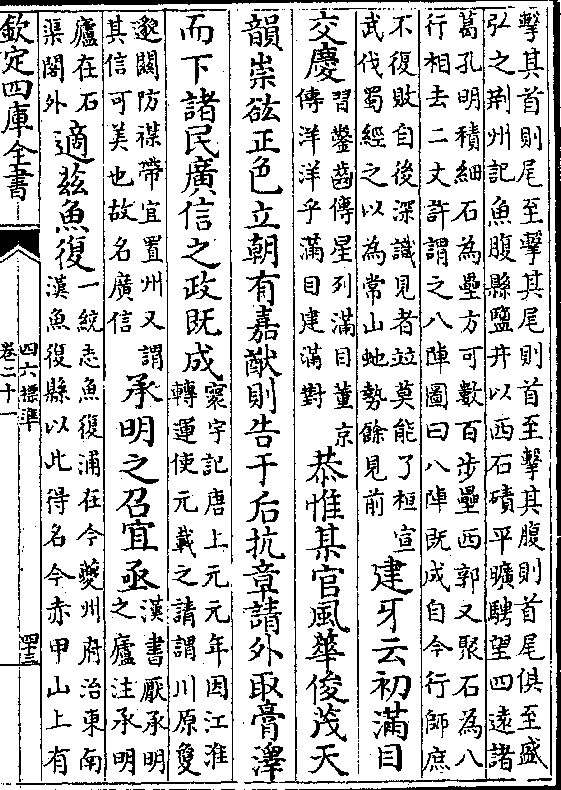 擊其首則尾至擊其尾則首至擊其腹則首尾俱至盛
弘之荆州記魚腹縣鹽井以西石磧平曠騁望四遠諸
葛孔明積細石為壘方可數百步壘西郭又聚石為八
行相去二丈許謂之八陣圖曰八陣既成自今行師庶
不復敗自後深識見者竝莫能了桓宣
武伐蜀經之以為常山虵勢餘見前
建牙云初滿目
交慶
習鑿齒傳星列滿目董京
傳洋洋乎滿目建滿對
恭惟某官風華俊茂天
韻崇竑正色立朝有嘉猷則告于后抗章請外取膏澤
而下諸民廣信之政既成
寰宇記唐上元元年因江淮
轉運使元載之請謂川原敻
邈關防襟帶宜置州又謂
其信可美也故名廣信
承明之召宜亟
漢書厭承明
之廬注承明
廬在石
渠閣外
適兹魚復
一統志魚復浦在今夔州府治東南
漢魚復縣以此得名今赤甲山上有
欽定四庫全書
四六標準
卷二十一
四十三